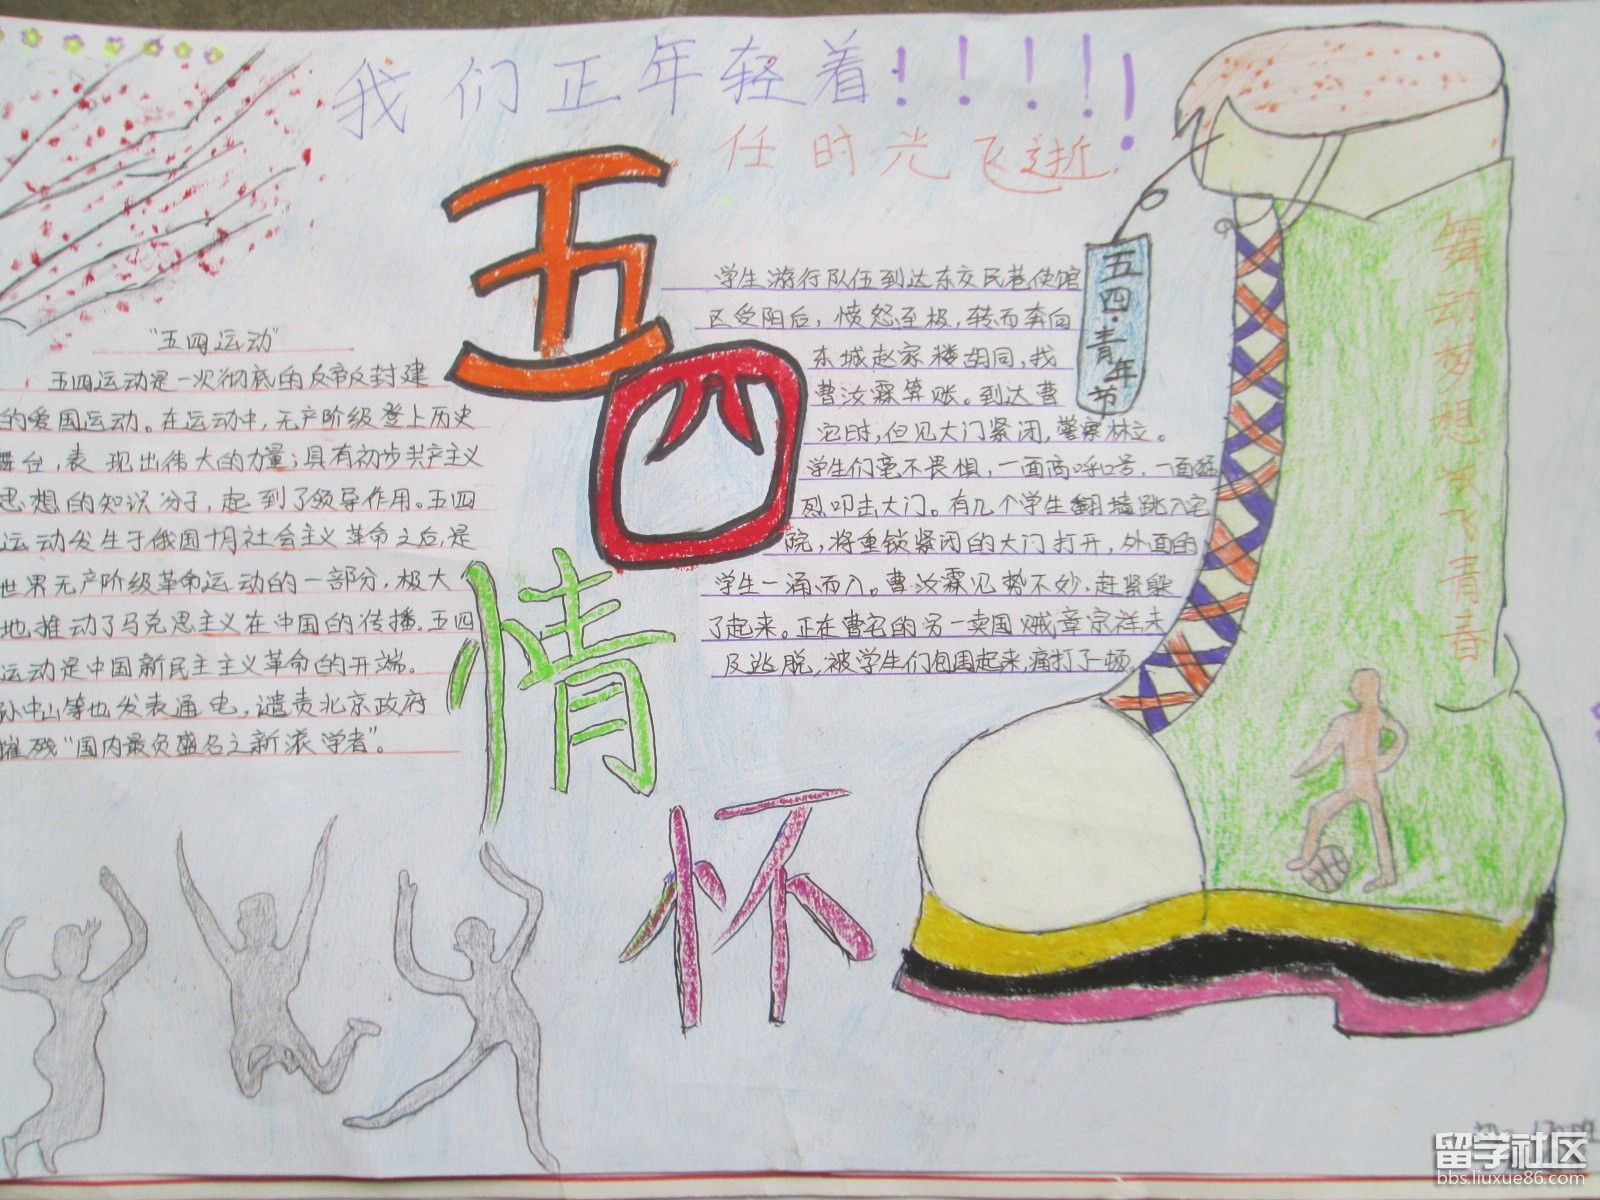 我们正年轻着！！！！！
任时光飞逝
五四情怀
"五四运动"
五四运动是一次彻底的反帝反封建
的爱国运动。在运动中，无产阶级登上历史
舞台，表现出伟大的力量；具有初步共产主义
思想的知识分子，起到了领导作用。五四
运动发生于俄国十月社会主义革命之后，是
世界无产阶级革命运动的一部分，极大
地推动了马克思主义在中国的传播。五四
运动是中国新民主主义革命的开端。
孙中山等也发表通电，谴责北京政府
摧残"国内最负盛名之新派学者"。
学生游行队伍到达东交民巷使馆
区受阻后，愤怒至极，转而奔向
东城赵家楼胡同，找
曹汝霖算账。到达曹
宅时，但见大门紧闭，警察林立。
学生们毫不畏惧，一面高呼口号，一面猛
烈叩击大门。有几个学生翻墙跳入宅
院，将重锁紧闭的大门打开，外面的
学生一涌而入。曹汝霖见势不妙，赶紧躲
了起来。正在曹宅的另一卖国贼章宗祥未
及逃脱，被学生们包围起来，痛打了一顿。
五四·青年节
舞动梦想放飞青春
留学社区
bbs.liuxue86.com